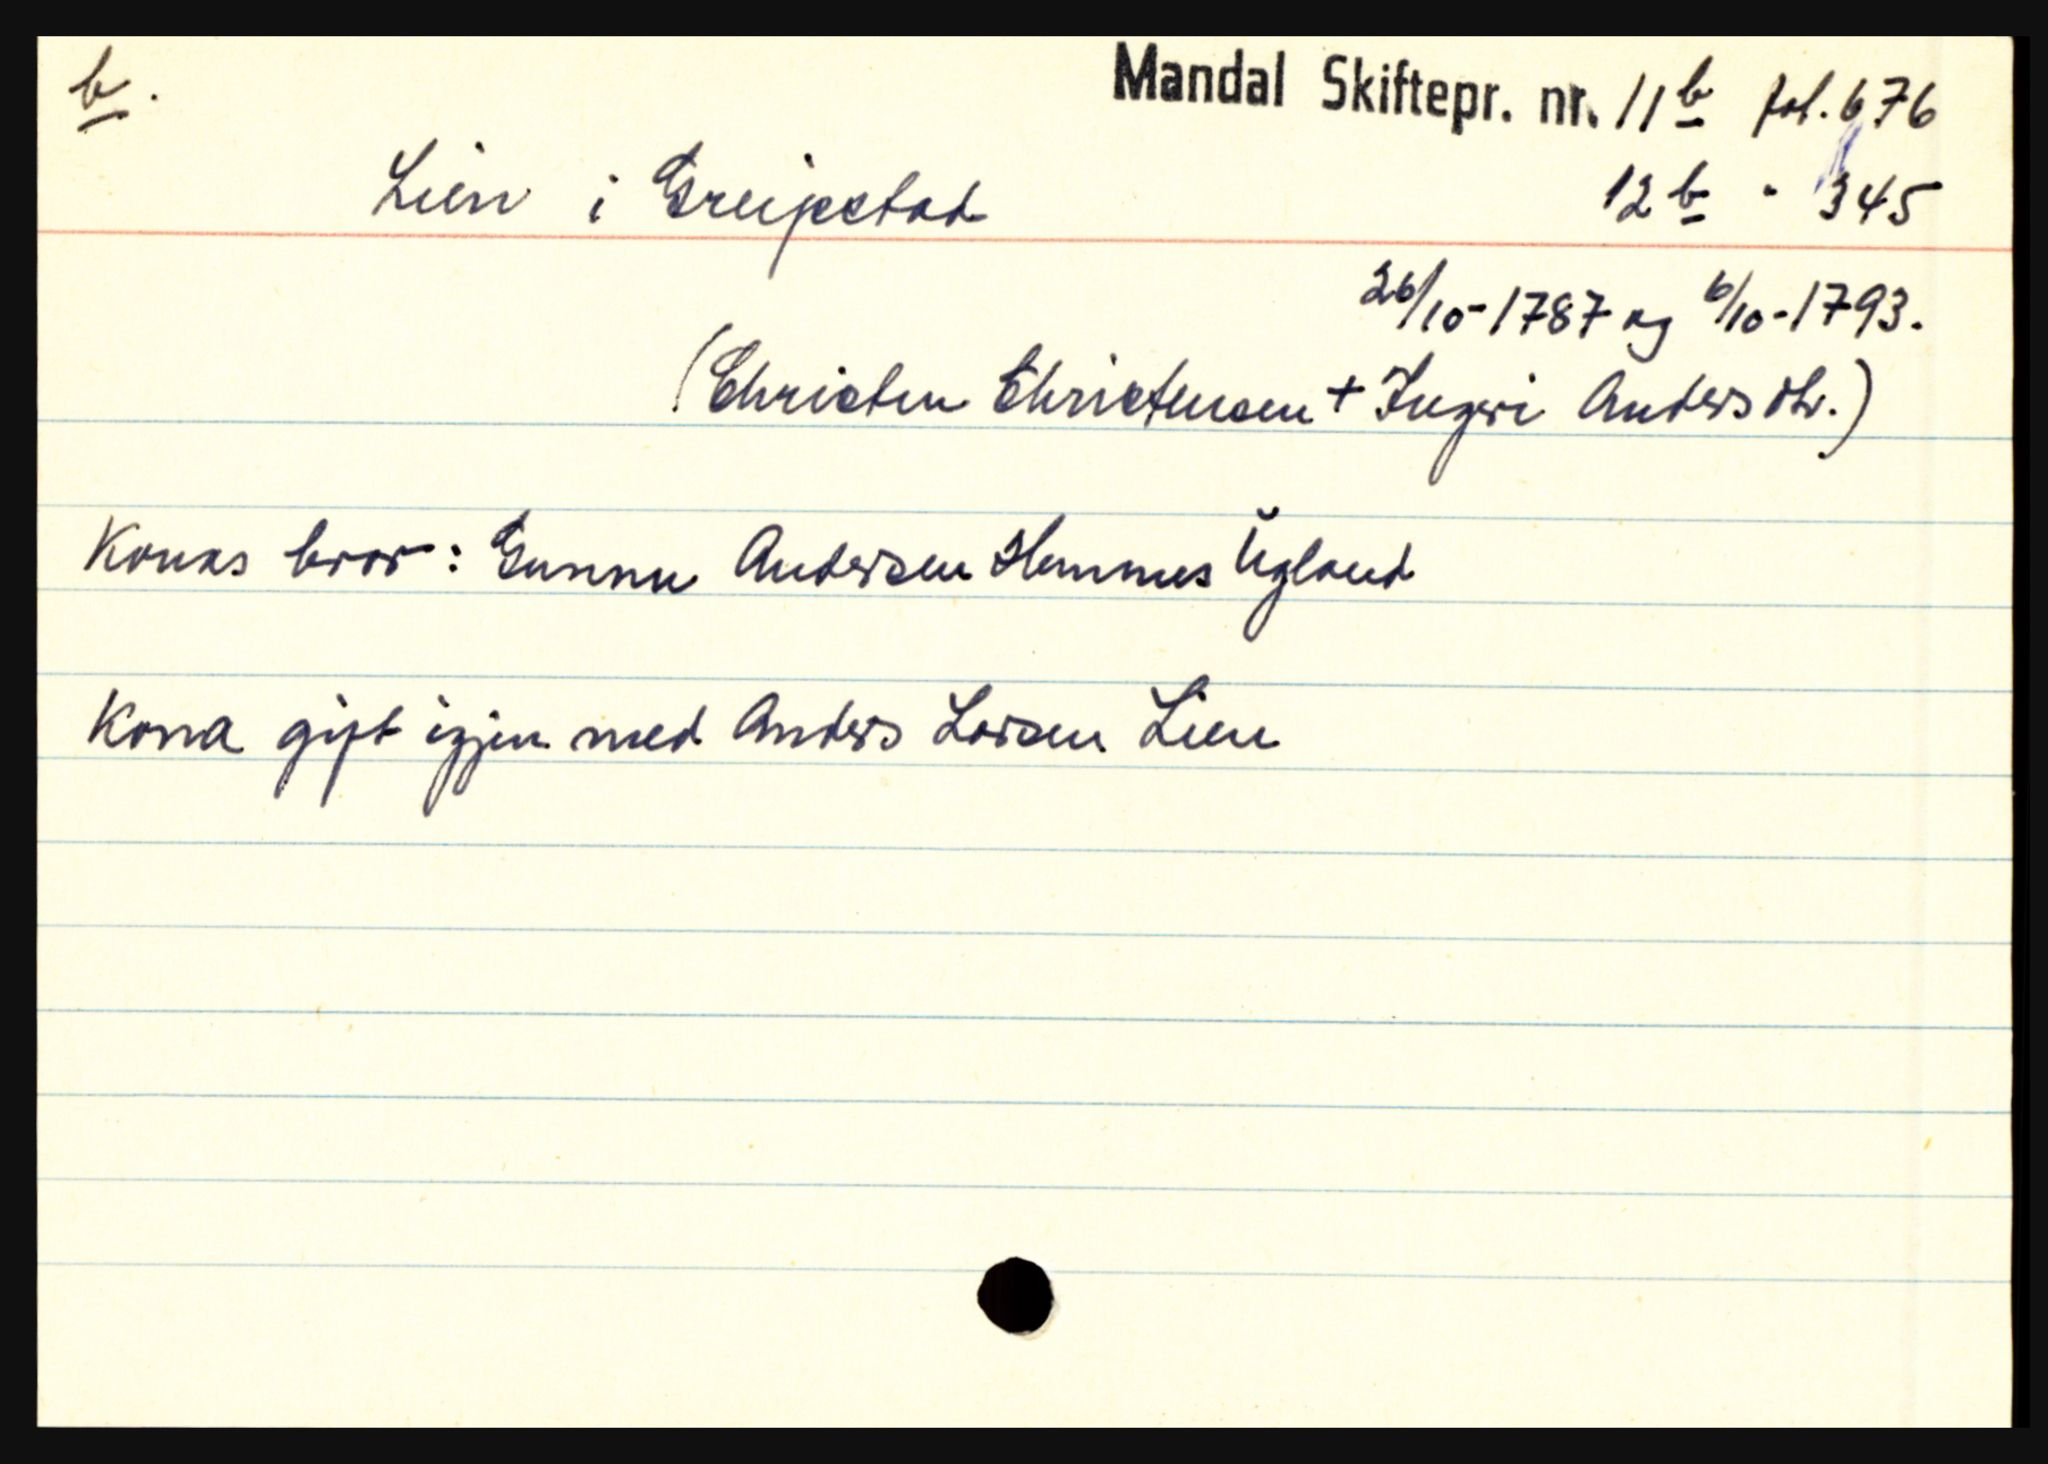 b.
Mandal Skiftepr. nr. 11b fol. 676
Lien i Greipstad
12b " 345
26/10-1787 og 6/10-1793.
(Christen Christensen + Ingeri Andersdtr.)
Konas bror: Gunnu Andersen Hommes Ugland
Kona gift igjen med Anders Larsen Lien